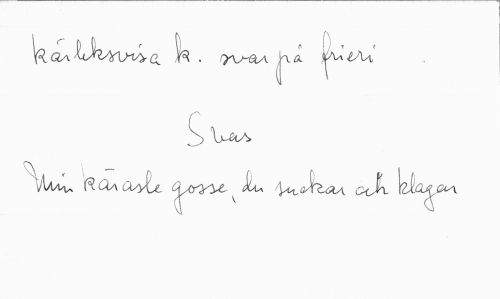 kärleksvisa k. svar på frieri
Svar
Min käraste gosse, du suckar och klagar